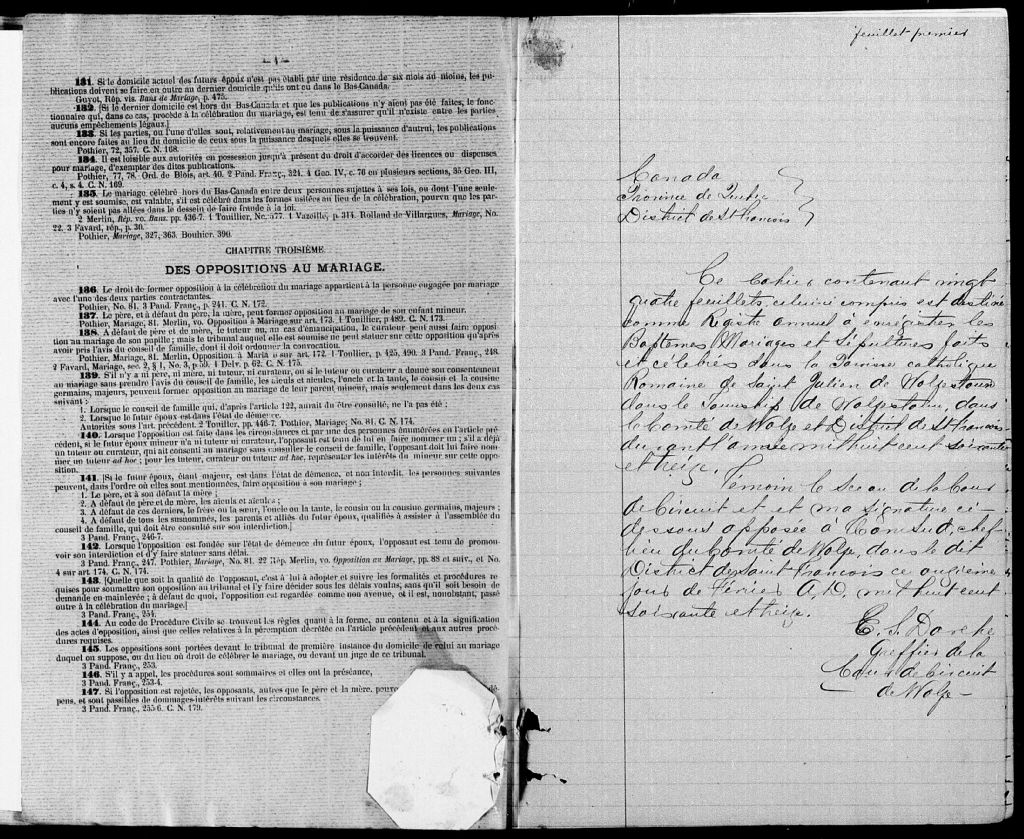 — 4 —
131. Si le domicile actuel des futurs époux n'est pas établi par une résidence de six mois au moins, les pu-
blications doivent se faire en outre au dernier domicile qu'ils ont eu dans le Bas-Canada.
Guyot, Rép. vis. Bans de Mariage, p. 475.
132. [Si le dernier domicile est hors du Bas-Canada et que les publications n'y aient pas été faites, le fonc-
tionnaire qui, dans ce cas, procède à la célébration du mariage, est tenu de s'assurer qu'il n'existe entre les parties
aucuns empêchements légaux.]
133. Si les parties, ou l'une d'elles sont, relativement au mariage, sous la puissance d'autrui, les publications
sont encore faites au lieu du domicile de ceux sous la puissance desquels elles se trouvent.
Pothier, 72, 357. C. N. 168.
134. Il est loisible aux autorités en possession jusqu'à présent du droit d'accorder des licences ou dispenses
pour mariage, d'exempter des dites publications.
Pothier, 77, 78. Ord. de Blois, art. 40. 2 Pand. Franç., 324. 4 Geo. IV, c. 76 en plusieurs sections, 35 Geo. III,
c. 4, s. 4. C. N. 169.
135. Le mariage célébré hors du Bas-Canada entre deux personnes sujettes à ses lois, ou dont l'une seule-
ment y est soumise, est valable, s'il est célébré dans les formes usitées au lieu de la célébration, pourvu que les par-
ties n'y soient pas allées dans le dessein de faire fraude à la loi.
2 Merlin, Rép. vo. Bans. pp. 436-7. 1 Touillier, No. 577. 1 Vazeille, p. 314. Rolland de Villargues, Mariage, No.
22. 3 Favard, rép., p. 30.
Pothier, Mariage, 327, 363. Bouhier. 390.
CHAPITRE TROISIÈME.
DES OPPOSITIONS AU MARIAGE.
136. Le droit de former opposition à la célébration du mariage appartient à la personne engagée par mariage
avec l'une des deux parties contractantes.
Pothier, No. 81. 3 Pand. Franç., p. 241. C. N. 172.
137. Le père, et à défaut du père, la mère, peut former opposition au mariage de son enfant mineur.
Pothier, Mariage, 81. Merlin, vo. Opposition à Mariage sur art. 173. 1 Toullier, p 489. C. N. 173.
138. A défaut de père et de mère, le tuteur ou, au cas d'émancipation, le curateur peut aussi faire opposi-
tion au mariage de son pupille; mais le tribunal auquel elle est soumise ne peut statuer sur cette opposition qu'après
avoir pris l'avis du conseil de famille, dont il doit ordonner la convocation.
Pothier, Mariage, 81. Merlin, Opposition à sur art. 172. 1 Toullier, p 425, 490. 3 Pand. Franç., 248.
2 Favard, Mariage, sec. 2, § 1, No. 3, p.59. 4 Delv. p. 62. C. N. 175.
139. S'il n'y a ni père, ni mère, ni tuteur, ni curateur, ou si le tuteur ou curateur a donné son consentement
au mariage sans prendre l'avis du conseil de famille, les aïeuls et aïeules, l'oncle et la tante, le cousin et la cousine
germains, majeurs, peuvent former opposition au mariage de leur parent mineur, mais seulement dans les deux cas
suivant :
1. Lorsque le conseil de famille qui, d'après l'article 122, aurait du être consulté, ne l'a pas été ;
2. Lorsque le futur époux est dans l'état de démence.
Autorités sous l'art. précédent. 2 Toullier, pp. 446-7. Pothier, Mariage; No. 81. C. N. 174.
140. Lorsque l'opposition est faite dans les circonstances et par une des personnes énumérées en l'article pré-
cédent, si le futur époux mineur n'a ni tuteur ni curateur, l'opposant est tenu de lui en faire nommer un ; s'il a déjà
un tuteur ou curateur, qui ait consenti au mariage sans consulter le conseil de famille, l'opposant doit lui faire nom-
mer un tuteur ad hoc ; pour les tuteur, curateur ou tuteur ad hoc, représenter les intérêts du mineur sur cette oppo-
sition.
141. [Si le futur époux, étant majeur, est dans l'état de démence, et non interdit, les personnes suivantes
peuvent, dans l'ordre où elles sont mentionnées, faire opposition à son mariage ;
1. Le père, et à son défaut la mère ;
2. A défaut de père et de mère, les aïeuls et aïeules ;
3. A défaut de ces derniers, le frère ou la sœur, l'oncle ou la tante, le cousin ou la cousine germains, majeurs ;
4. A défaut de tous les susnommés, les parents et alliés du futur époux, qualifiés à assister à l'assemblée du
conseil de famille, qui doit être consulté sur son interdiction.]
3 Pand. Franç., 246-7.
142. Lorsque l'opposition est fondée sur l'état de démence du futur époux, l'opposant est tenu de promou-
voir son interdiction et d'y faire statuer sans délai.
3 Pand. Franç., 247. Pothier, Mariage, No. 81. 22 Rép. Merlin, vo. Opposition au Mariage, pp. 88 et suiv., et No.
4 sur art 174. C. N. 174.
143. [Quelque soit la qualité de l'opposant, c'est à lui à adopter et suivre les formalités et procédures re-
quises pour soumettre son opposition au tribunal et l'y faire décider sous les délais voulus, sans qu'il soit besoin de
demande en mainlevée ; à défaut de quoi, l'opposition est regardée comme non avenue, et il est, nonobstant, passé
outre à la célébration du mariage.]
3 Pand. Franç., 254.
144. Au code de Procédure Civile se trouvent les règles quant à la forme, au contenu et à la signification
des actes d'opposition, ainsi que celles relatives à la péremption décrétée en l'article précédent et aux autres procé-
dures requises.
145. Les oppositions sont portées devant le tribunal de première instance du domicile de celui au mariage
duquel on s'oppose, ou du lieu où droit de célébrer le mariage, ou devant un juge de ce tribunal.
3 Pand. Franç., 253.
146. S'il y a appel, les procédures sont sommaires et elles ont la préséance,
3 Pand. Franç., 253-4.
147. Si l'opposition est rejetée, les opposants, autres que le père et la mère,
pens, et sont passibles de dommages-intérêts suivant les circonstances.
3 Pand. Franç., 255 6. C. N. 179.
feuillet premier
Canada
Province de Québec
District de St François
Ce Cahier contenant vingt
quatre feuillets, celui ci compris est destiné
comme Registre annuel à enregistrer les
Baptêmes Mariages et Sépultures faits
et célébrés dans la Paroisse catholique
Romaine de Saint Julien de Wolfstown
dans le Township de Wolfstown, dans
le Comté de Wolfe et District de St François
durant l'année mil huit cent soixante
et treize.
Temoin le sceau de la Cour
de Circuit et et ma signature ci-
dessous apposée à Ham Sud, chef-
lieu du Comté de Wolfe, dans le dit
District de Saint François ce onzième
jour de Février A.D. mil huit cent
soixante et treize.
Greffier de la
Cour de Circuit
de Wolfe —